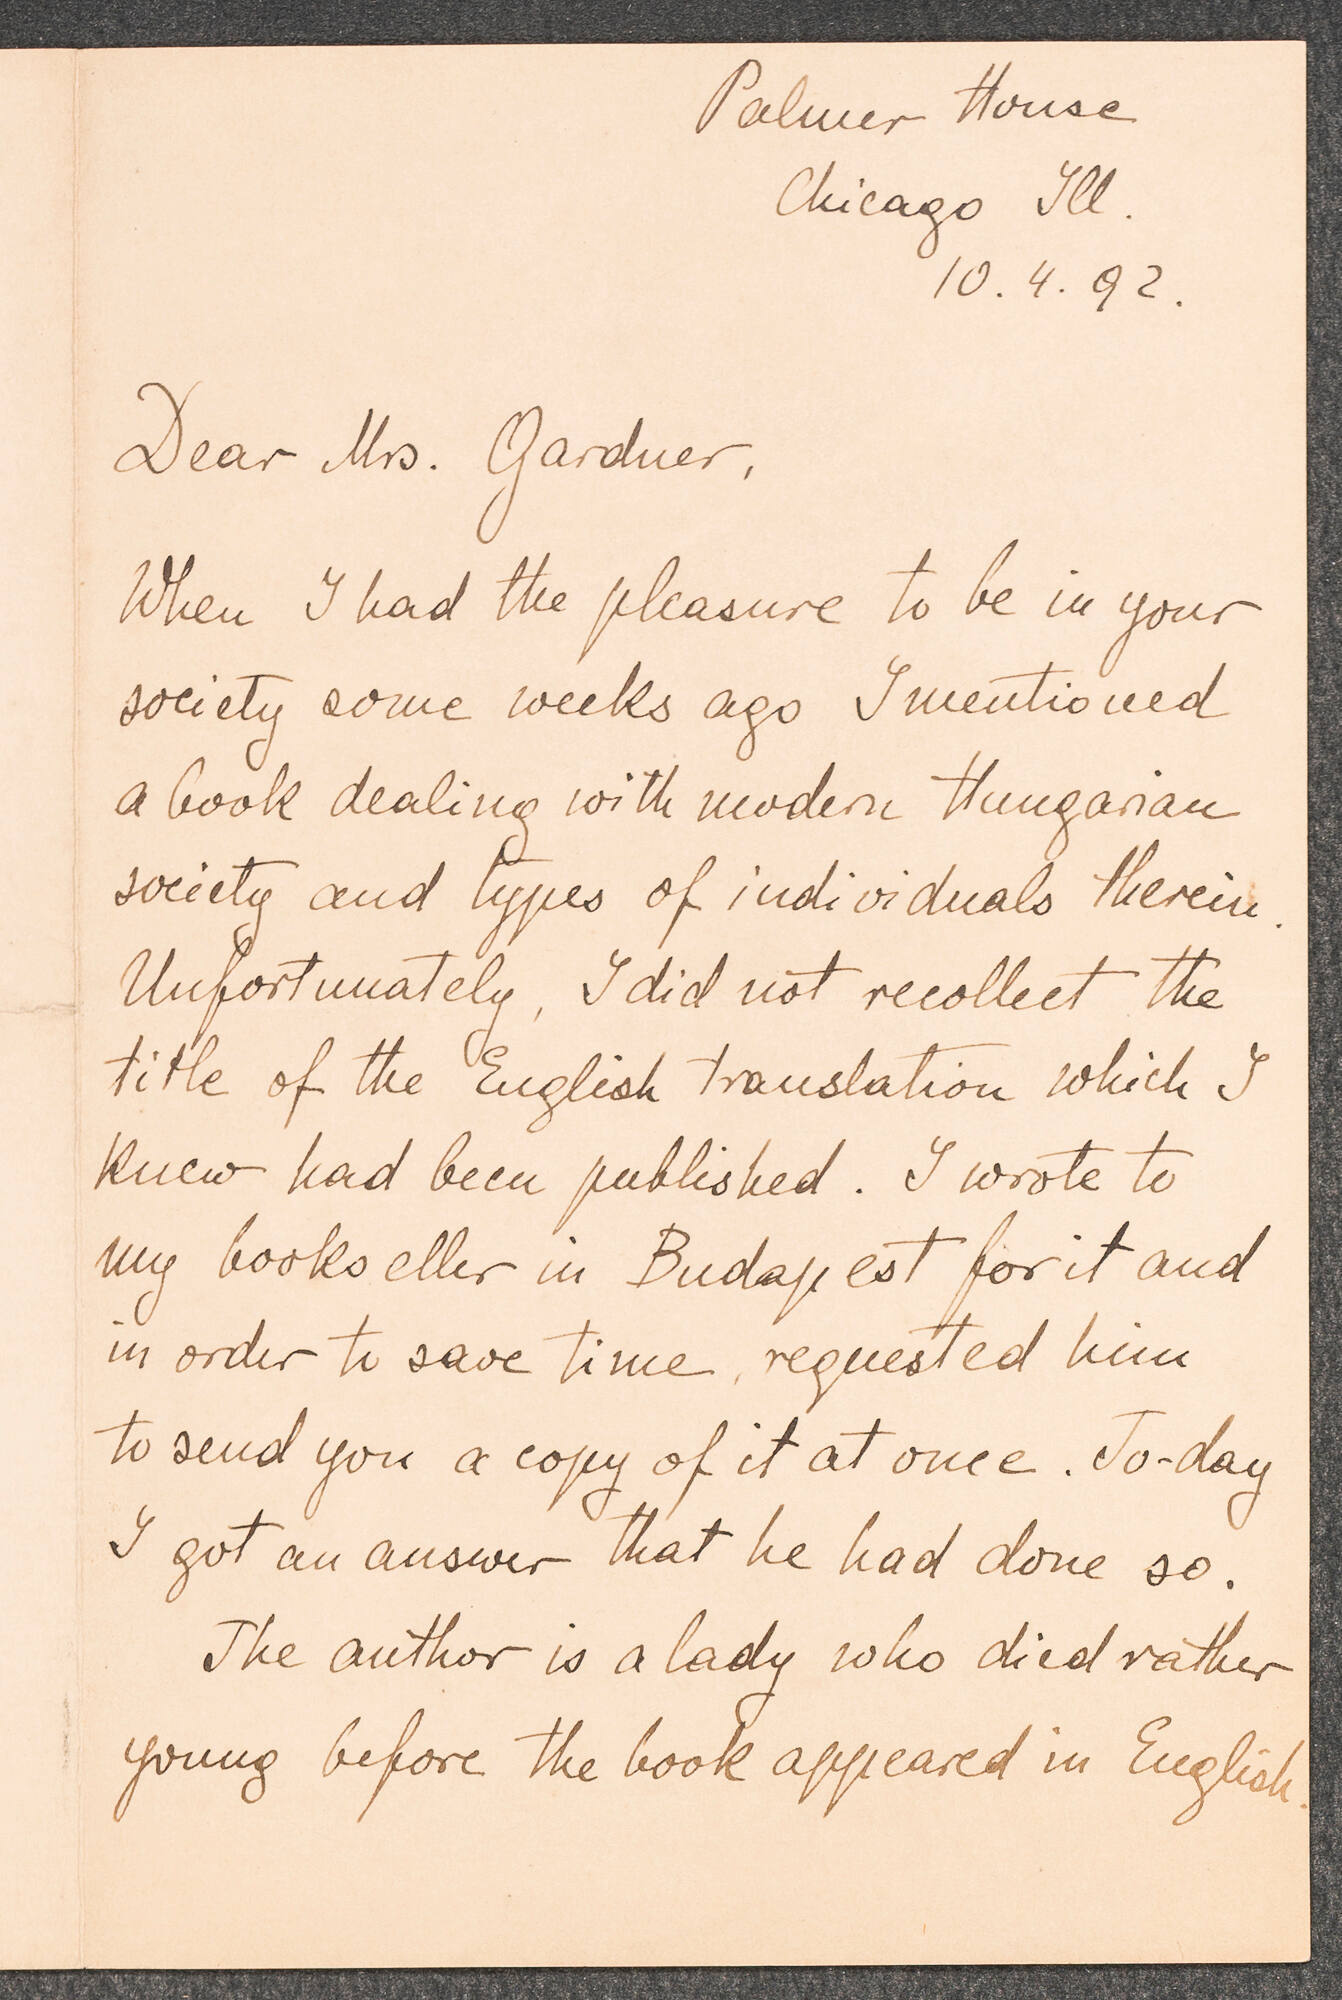 Palmer House
Chicago Ill.
10.4.92.
Dear Mrs. Gardner,
When I had the pleasure to be in your
society some weeks ago I mentioned
a book dealing with modern Hungarian
society and types of individuals therein.
Unfortunately, I did not recollect the
title of the English translation which I
knew had been published. I wrote to
my bookseller in Budapest for it and
in order to save time, requested him
to send you a copy of it at once. To-day
I got an answer that he had done so.
The author is a lady who died rather
young before the book appeared in English.